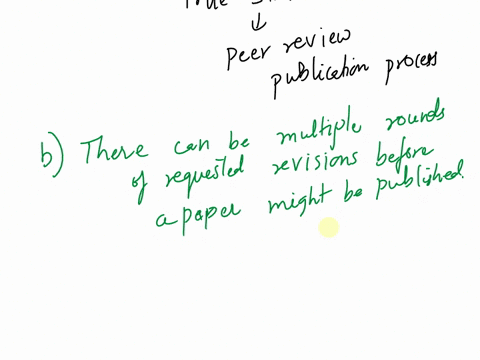 True
↓
peer review
publication process
b) There can be multiple rounds
of requested revisions before
a paper might be published.